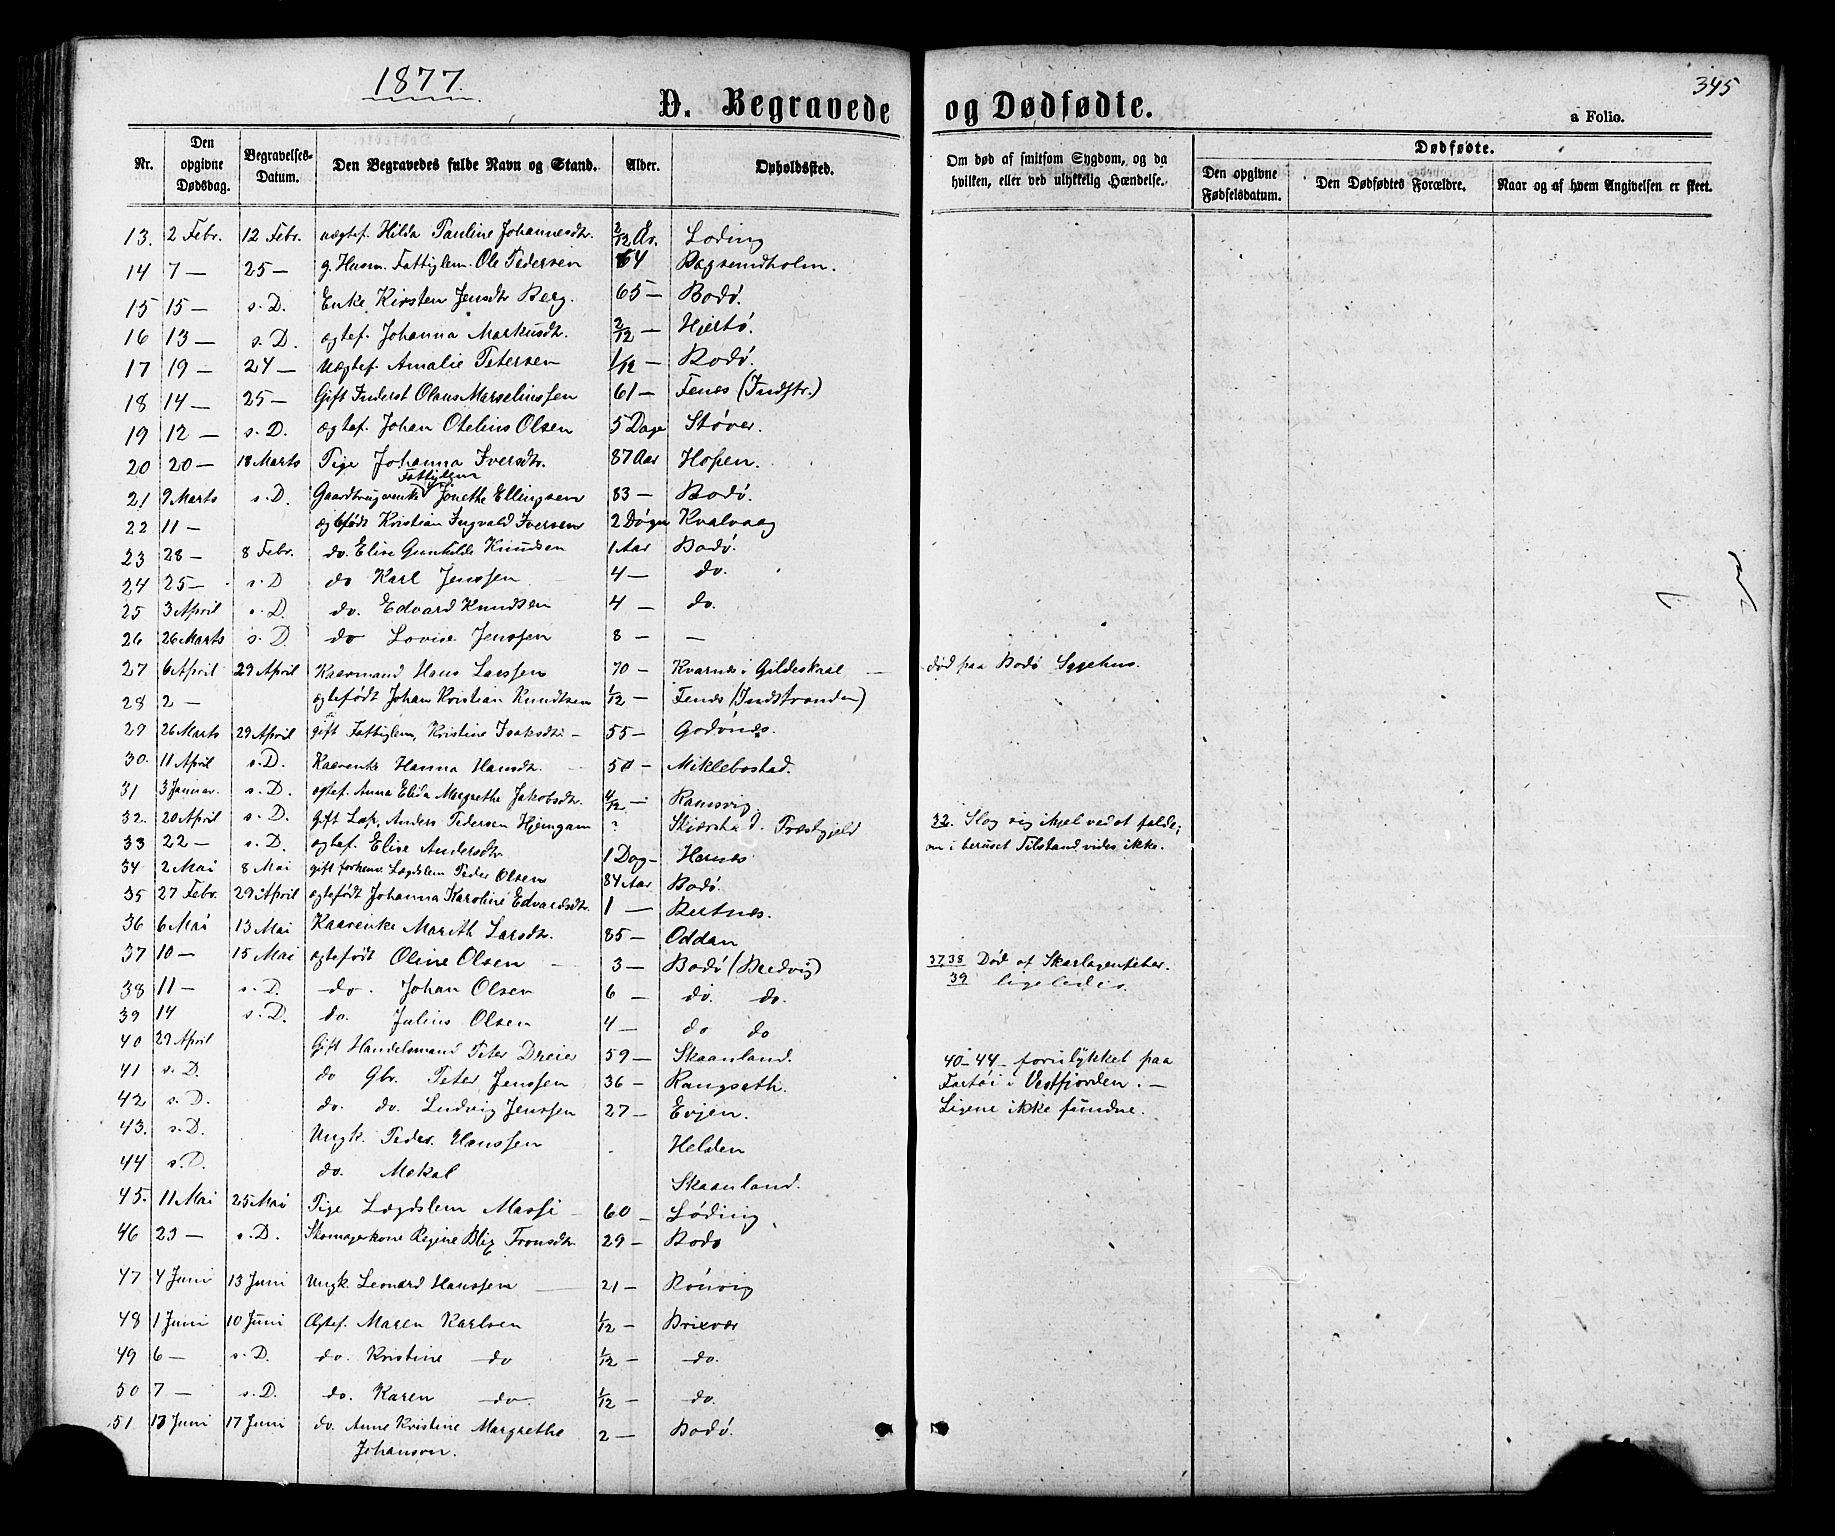 1877.
345
D. Begravede og Dødfødte.
a Folio.
Nr. | Den opgivne Dødsdag. | Begravelses-Datum. | Den Begravedes fulde Navn og Stand. | Alder. | Opholdssted. | Om død af smitsom Sygdom, og da hvilken, eller ved ulykkelig Hændelse. | Dødfødte. | Den opgivne Fødselsdatum. | Den Dødfødtes Forældre. | Naar og af hvem Angivelsen er skeet.
13. 2 Febr. 12 Febr. uægtef. Hilda Pauline Johannesdtr. 2/12 År. Loding
14 7 — 25 — g. Husm. Fattiglem. Ole Pedersen 64 Bagsundholm.
15 15 — s. D. Enke Kirsten Jensdtr Berg. 65 — Bodø.
16 13 — s. D. ægtef. Johanna Markusdtr. 2/12 — Hjertø.
17 19 — 24 — Uægtef. Amalie Petersen 1/12 — Bodø.
18 14 — 25 — Gift Inderst Olaus Marselinssen 61 — Fenes (Indstr.)
19 12 — s. D. ægtef. Johan Otelius Olsen 5 Dage Støver.
20 20 — 18 Marts Pige Johanna Iversdtr. 87 Aar Hopen.
21 9 Marts s. D. Gaardbrugerenke Fattiglem Jonetha Ellingsen 83 — Bodø.
22 11 — ægtefødt Kristian Ingvald Iversen 2 Døgn Kvalvaag
23 28 — 8 Febr. do. Elise Gunhilde Knudsen 1 Aar Bodø.
24 25 — s. D do Karl Jenssen 4 — do.
25 3 April s. D. do. Edvard Knudsen 4 — do.
26 26 Marts s. D. do Lovise Jenssen 8 — —
27 6 April 29 April Kaarmand Hans Larssen 70 — Kvarnes i Gildeskaal — død paa Bodø Sygehus.
28 2 — ægtefødt Johan Kristian Knudtsen 1/12 — Fenes (Indstranden)
29 26 Marts 29 April gift Fattiglem, Kristine Isaksdtr — 55 — Godønes.
30. 11 April s. D. Kaarenke Hanna Hansdtr. 50 — Miklebostad.
31 3 Januar. s. D. ægtef. Anna Elida Margrethe Jakobsdtr. 4/12 — Ramsvig
32. 20 April s. D. gift Lap, Anders Pedersen Hjemgam ? Skjerstad Præstgjeld 32. Slog sig ihjel ved at falde;
33 22 — s. D. ægtef. Elise Andersdtr. 1 Dag — Hernes om i beruset Tilstand vides ikke.
34 2 Mai 8 Mai gift forhenv. Lægdslem Peder Olsen 84 Aar Bodø.
35 27 Febr. 29 April ægtefødt Johanna Karoline Edvardsdtr. 1 — Bertnes.
36 6 Mai 13 Mai Kaarenke Marith Larsdtr. 85 — Oddan
37 10 — 15 Mai ægtefødt Oline Olsen 3 — Bodø (Bredvig) 37 38 Død af Skarlagensfeber.
38 11 — s. D. do. Johan Olsen 6 do. do. 39 ligeledes.
39 14 s. D. do. Julius Olsen 4 — do do
40 29 April Gift Handelsmand Peter Dreier 59 — Skaanland. 40 – 44 – forulykket paa
41 s. D. do Gbr. Peter Jenssen 36 — Kangsath. Fartøi i Vestfjorden. —
42 s. D. do. do. Ludvig Jenssen 27 — Evjen. Ligene ikke fundne.
43. s. D. Ungk. Peder Hanssen Helden
44 s. D. do. Mekal Skaanland.
45. 11 Mai 25 Mai Pige Lægdslem Massi — 60 — Løding
46 23 — s. D. Skomagerkone Regine Blix Tronsdtr. 29 — Bodø
47 4 Juni 13 Juni Ungk. Leonard Hanssen 21 — Rønvig
48 1 Juni 10 Juni Ægtef. Maren Karlsen 1/12 — Brixvær
49 6 — s. D. do. Kristine do 1/12 — do.
50 7 — s. D. do. Karen do. 1/12 — do.
51 13 Juni 17 Juni do. Anne Kristine Margrethe Johanson. 2 — Bodø.